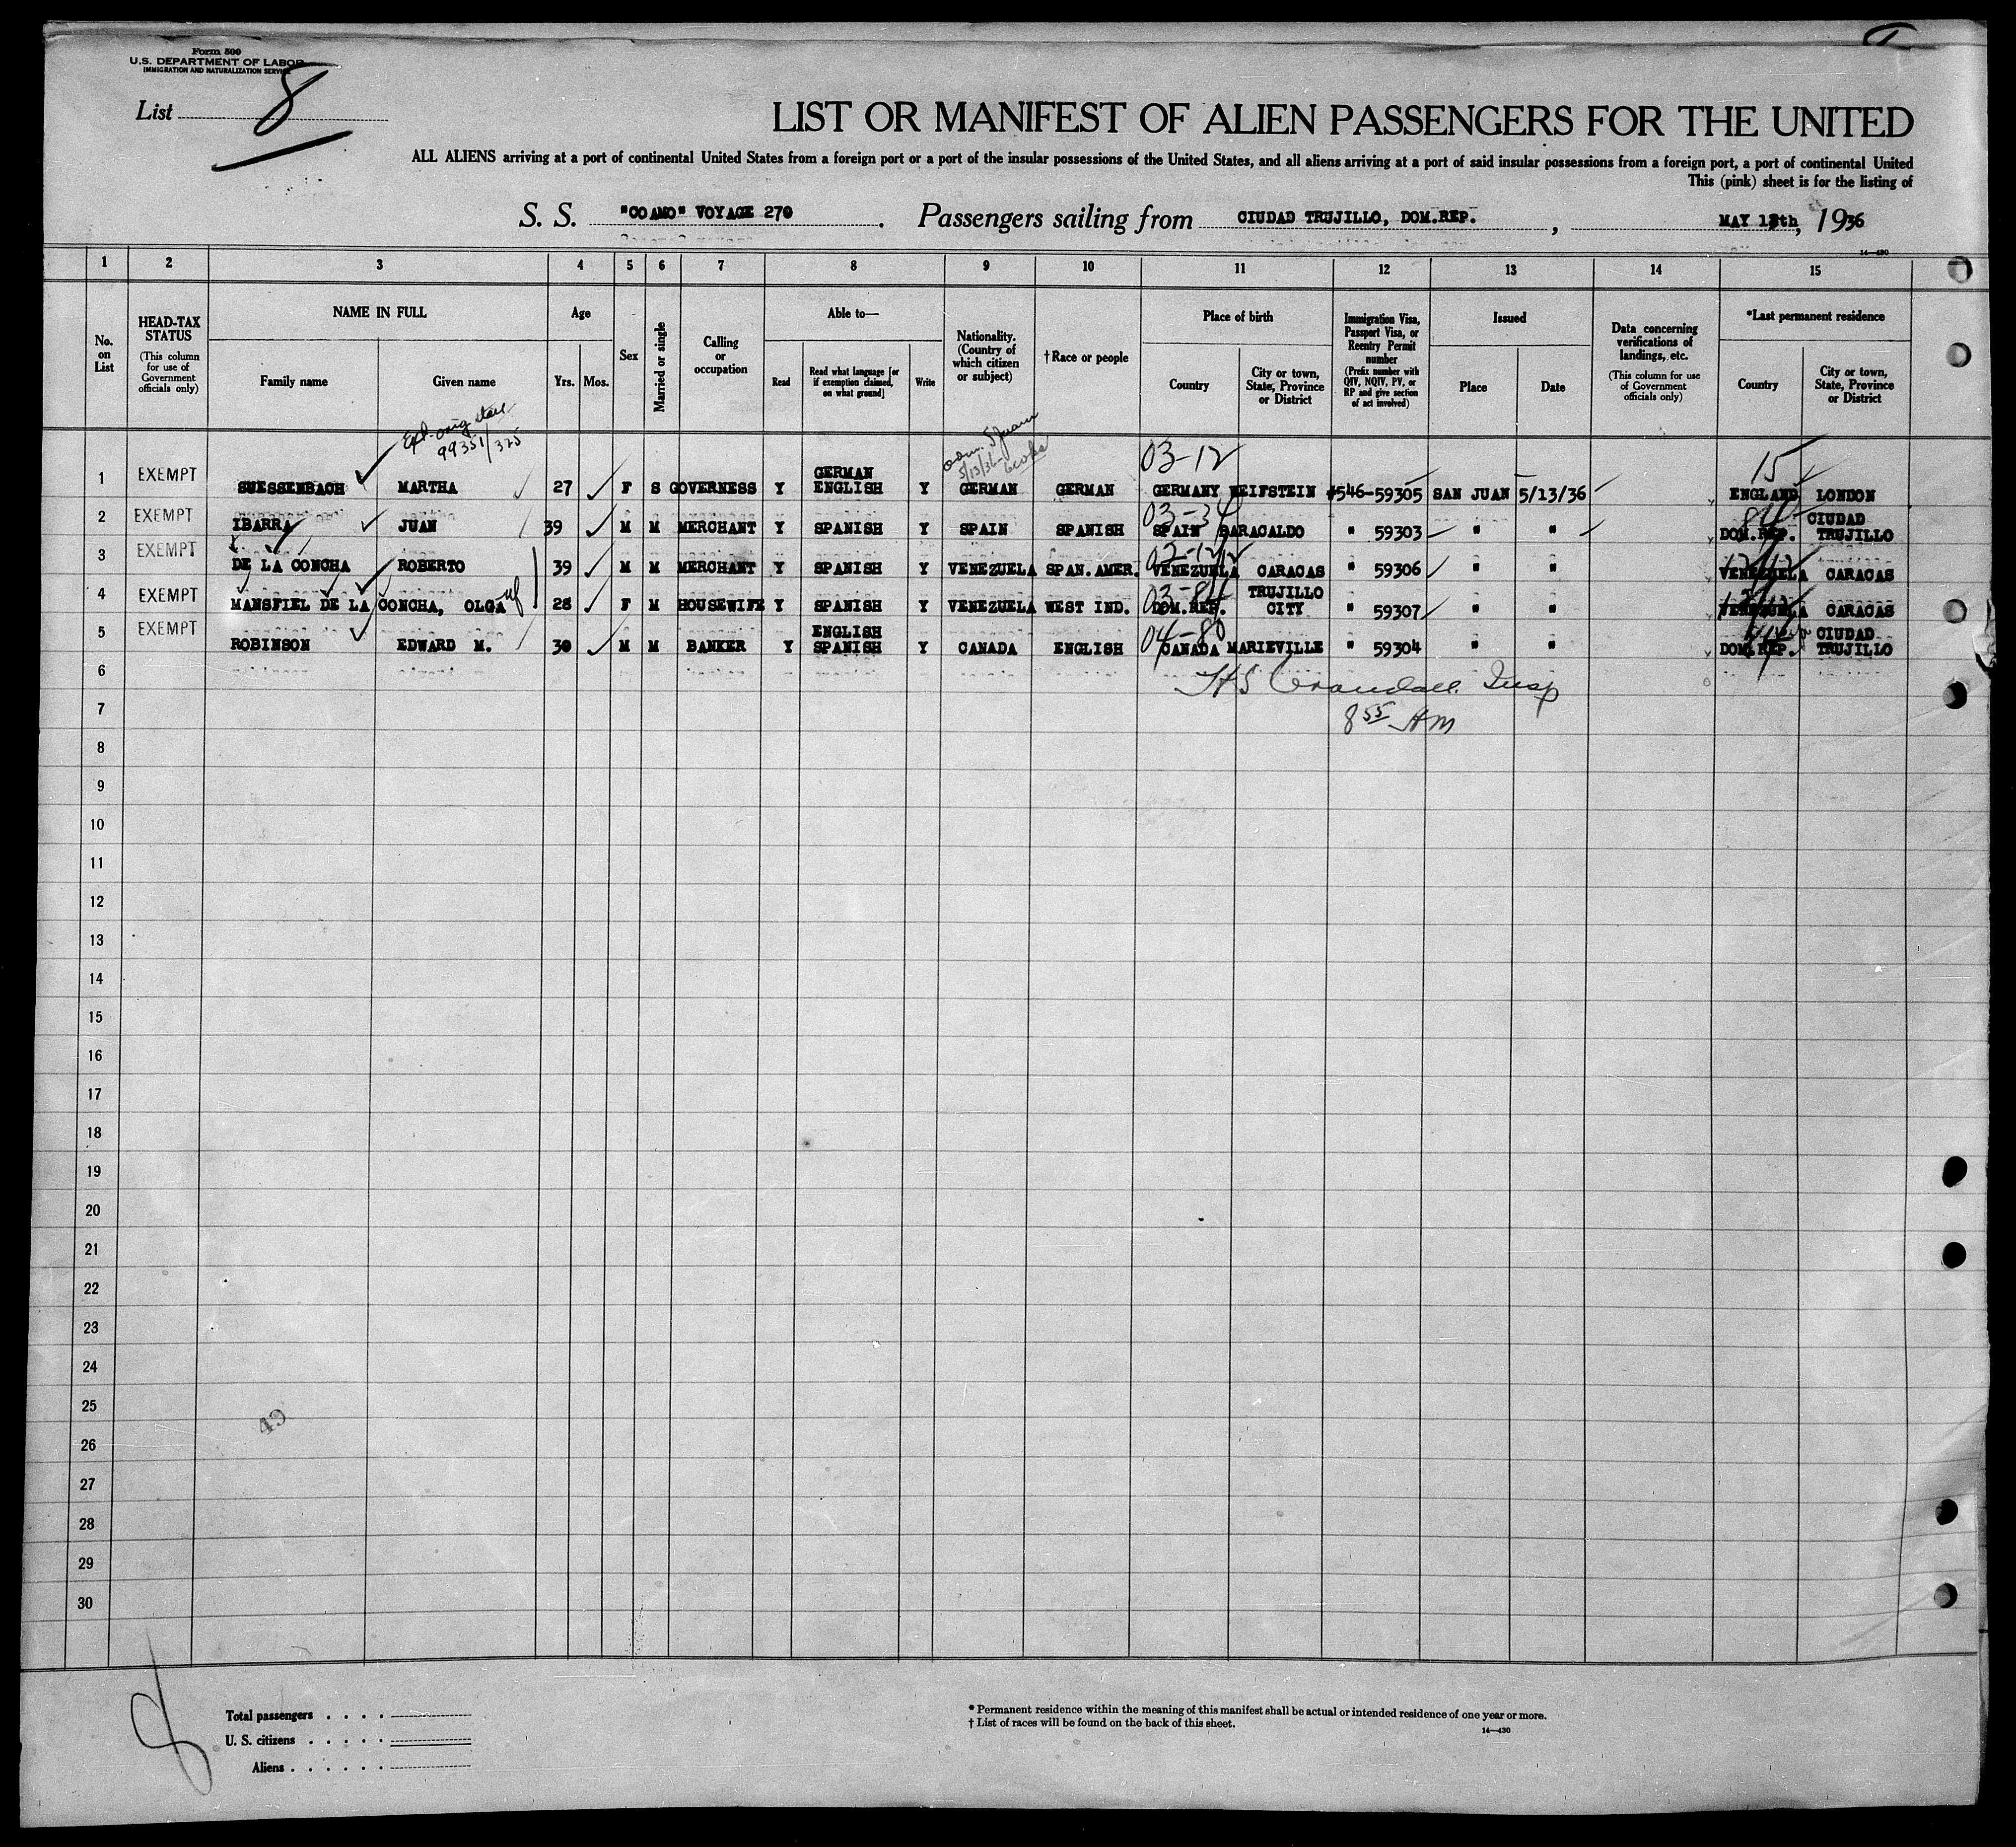 Form 500
U.S. DEPARTMENT OF LABOR
IMMIGRATION AND NATURALIZATION SERVICE
List 8
LIST OR MANIFEST OF ALIEN PASSENGERS FOR THE UNITED
ALL ALIENS arriving at a port of continental United States from a foreign port or a port of the insular possessions of the United States, and all aliens arriving at a port of said insular possessions from a foreign port, a port of continental United
This (pink) sheet is for the listing of
S. S. "COAMO" VOYAGE 270 . Passengers sailing from CIUDAD TRUJILLO, DOM.REP. , MAY 13th, 1936
14—430
1 2 3 4 5 6 7 8 9 10 11 12 13 14 15
No. on List
HEAD-TAX STATUS
(This column for use of Government officials only)
NAME IN FULL
Family name
Given name
Age
Yrs. Mos.
Sex
Married or single
Calling or occupation
Able to—
Read
Read what language [or if exemption claimed, on what ground]
Write
Nationality. (Country of which citizen or subject)
† Race or people
Place of birth
Country
City or town, State, Province or District
Immigration Visa, Passport Visa, or Reentry Permit number
(Prefix number with QIV, NQIV, PV, or RP and give section of act involved)
Issued
Place
Date
Data concerning verifications of landings, etc.
(This column for use of Government officials only)
*Last permanent residence
Country
City or town, State, Province or District
99351/325
5/13/36
03-12
15
1 EXEMPT SUESSENBACH MARTHA 27 F S GOVERNESS Y GERMAN ENGLISH Y GERMAN GERMAN GERMANY WEIFSTEIN #546-59305 SAN JUAN 5/13/36 ENGLAND LONDON
03-34
84
2 EXEMPT IBARRA JUAN 39 M M MERCHANT Y SPANISH Y SPAIN SPANISH SPAIN BARACALDO " 59303 " " DOM.REP. CIUDAD TRUJILLO
3 EXEMPT DE LA CONCHA ROBERTO 39 M M MERCHANT Y SPANISH Y VENEZUELA SPAN.AMER. VENEZUELA CARACAS " 59306 " " VENEZUELA CARACAS
03-84
4 EXEMPT MANSFIEL DE LA CONCHA, OLGA wf 28 F M HOUSEWIFE Y SPANISH Y VENEZUELA WEST IND. DOM.REP. TRUJILLO CITY " 59307 " " VENEZUELA CARACAS
04-80
5 EXEMPT ROBINSON EDWARD M. 30 M M BANKER Y ENGLISH SPANISH Y CANADA ENGLISH CANADA MARIEVILLE " 59304 " " DOM.REP. CIUDAD TRUJILLO
6
Crandall Insp
7
8 55 AM
8
9
10
11
12
13
14
15
16
17
18
19
20
21
22
23
24
25
49
26
27
28
29
30
8
Total passengers . . . .
U. S. citizens . . . . .
Aliens . . . . . .
* Permanent residence within the meaning of this manifest shall be actual or intended residence of one year or more.
† List of races will be found on the back of this sheet.
14—430